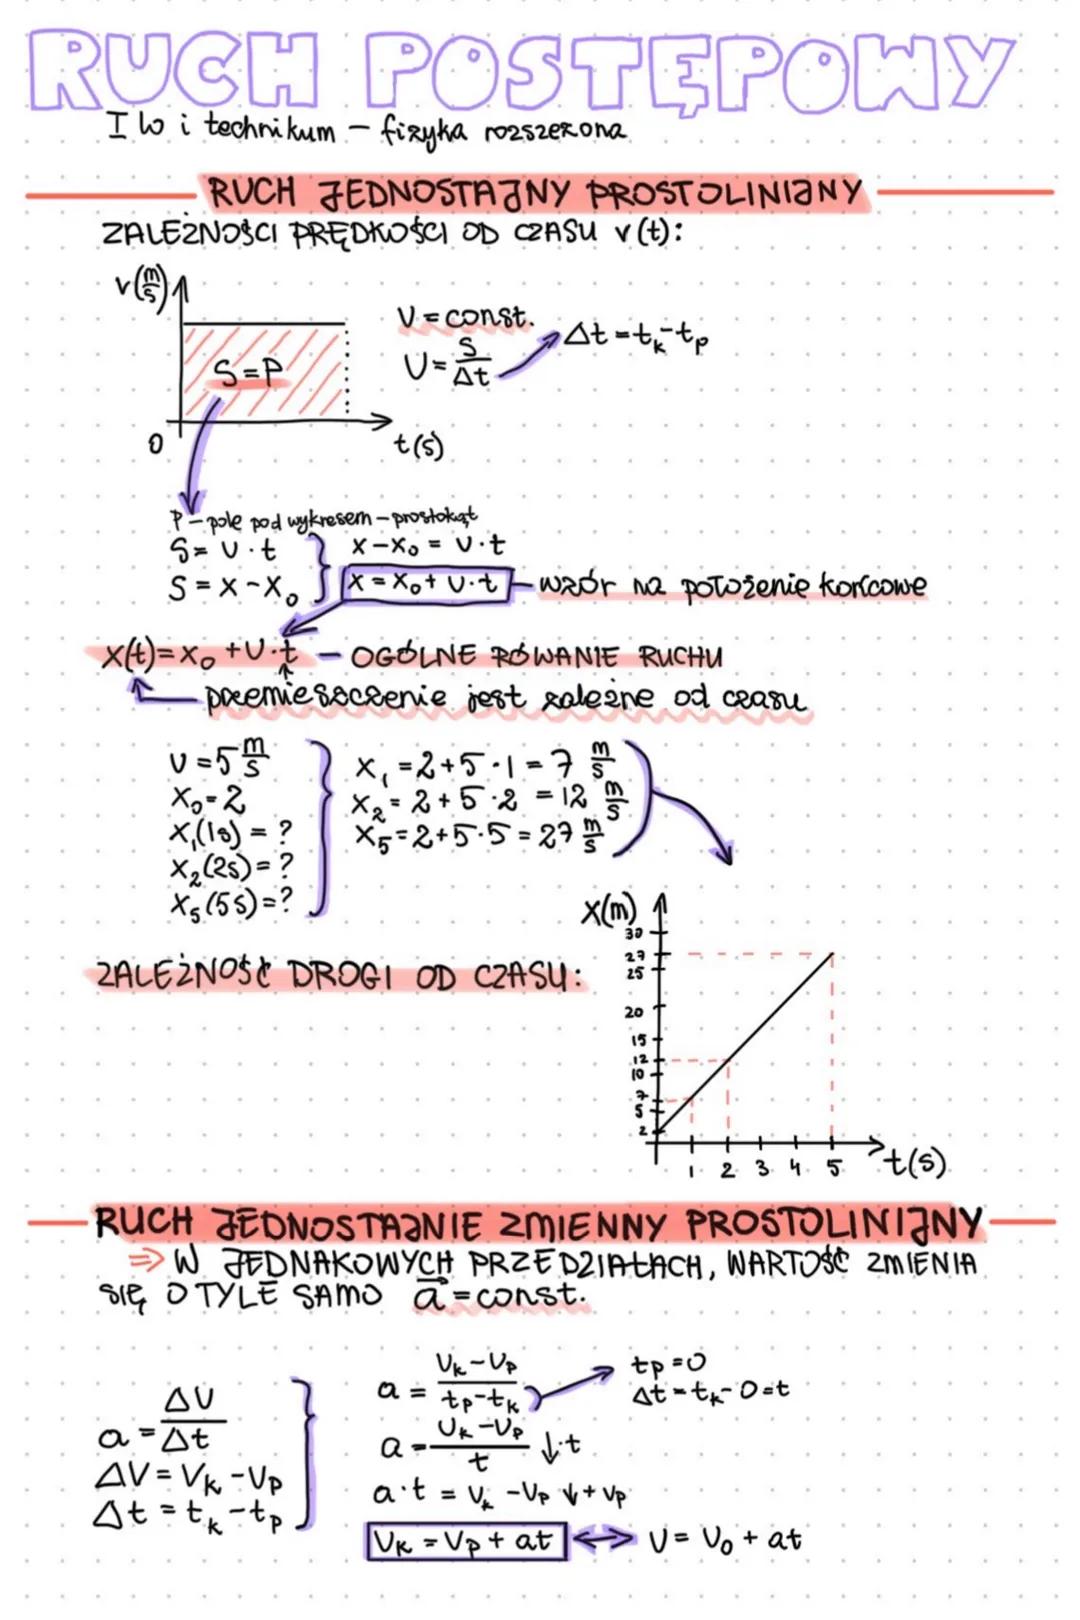 RUCH POSTĘPOWY
I lo i technikum – fizyka rozszerzona
RUCH JEDNOSTAJNY PROSTOLINIJNY
ZALEŻNOŚCI PRĘDKOŚCI OD CZASU v(t):
v(m/s)
S=P
0
t(s)
V = const.
V = S/Δt
Δt = tk - tp
P – pole pod wykresem – prostokąt
S = v · t
S = x - x₀
x - x₀ = v · t
x = x₀ + v · t – wzór na położenie końcowe
x(t) = x₀ + v · t – OGÓLNE RÓWANIE RUCHU
przemieszczenie jest zależne od czasu
v = 5 m/s
x₀ = 2
x₁(1s) = ?
x₂(2s) = ?
x₅(5s) = ?
x₁ = 2 + 5 · 1 = 7 m/s
x₂ = 2 + 5 · 2 = 12 m/s
x₅ = 2 + 5 · 5 = 27 m/s
ZALEŻNOŚĆ DROGI OD CZASU:
x(m)
30
27
25
20
15
12
10
7
5
2
1 2 3 4 5
t(s)
RUCH JEDNOSTAJNIE ZMIENNY PROSTOLINIJNY
⇒ W JEDNAKOWYCH PRZEDZIAŁACH, WARTOŚĆ ZMIENIA
SIĘ O TYLE SAMO a⃗ = const.
a = ΔV/Δt
ΔV = Vk - Vp
Δt = tk - tp
a = (Vk - Vp)/(tp - tk)
tp = 0
Δt = tk - 0 = t
a = (Vk - Vp)/t ↓ · t
a · t = Vk - Vp ↓ + Vp
Vk = Vp + at ↔ V = V₀ + at